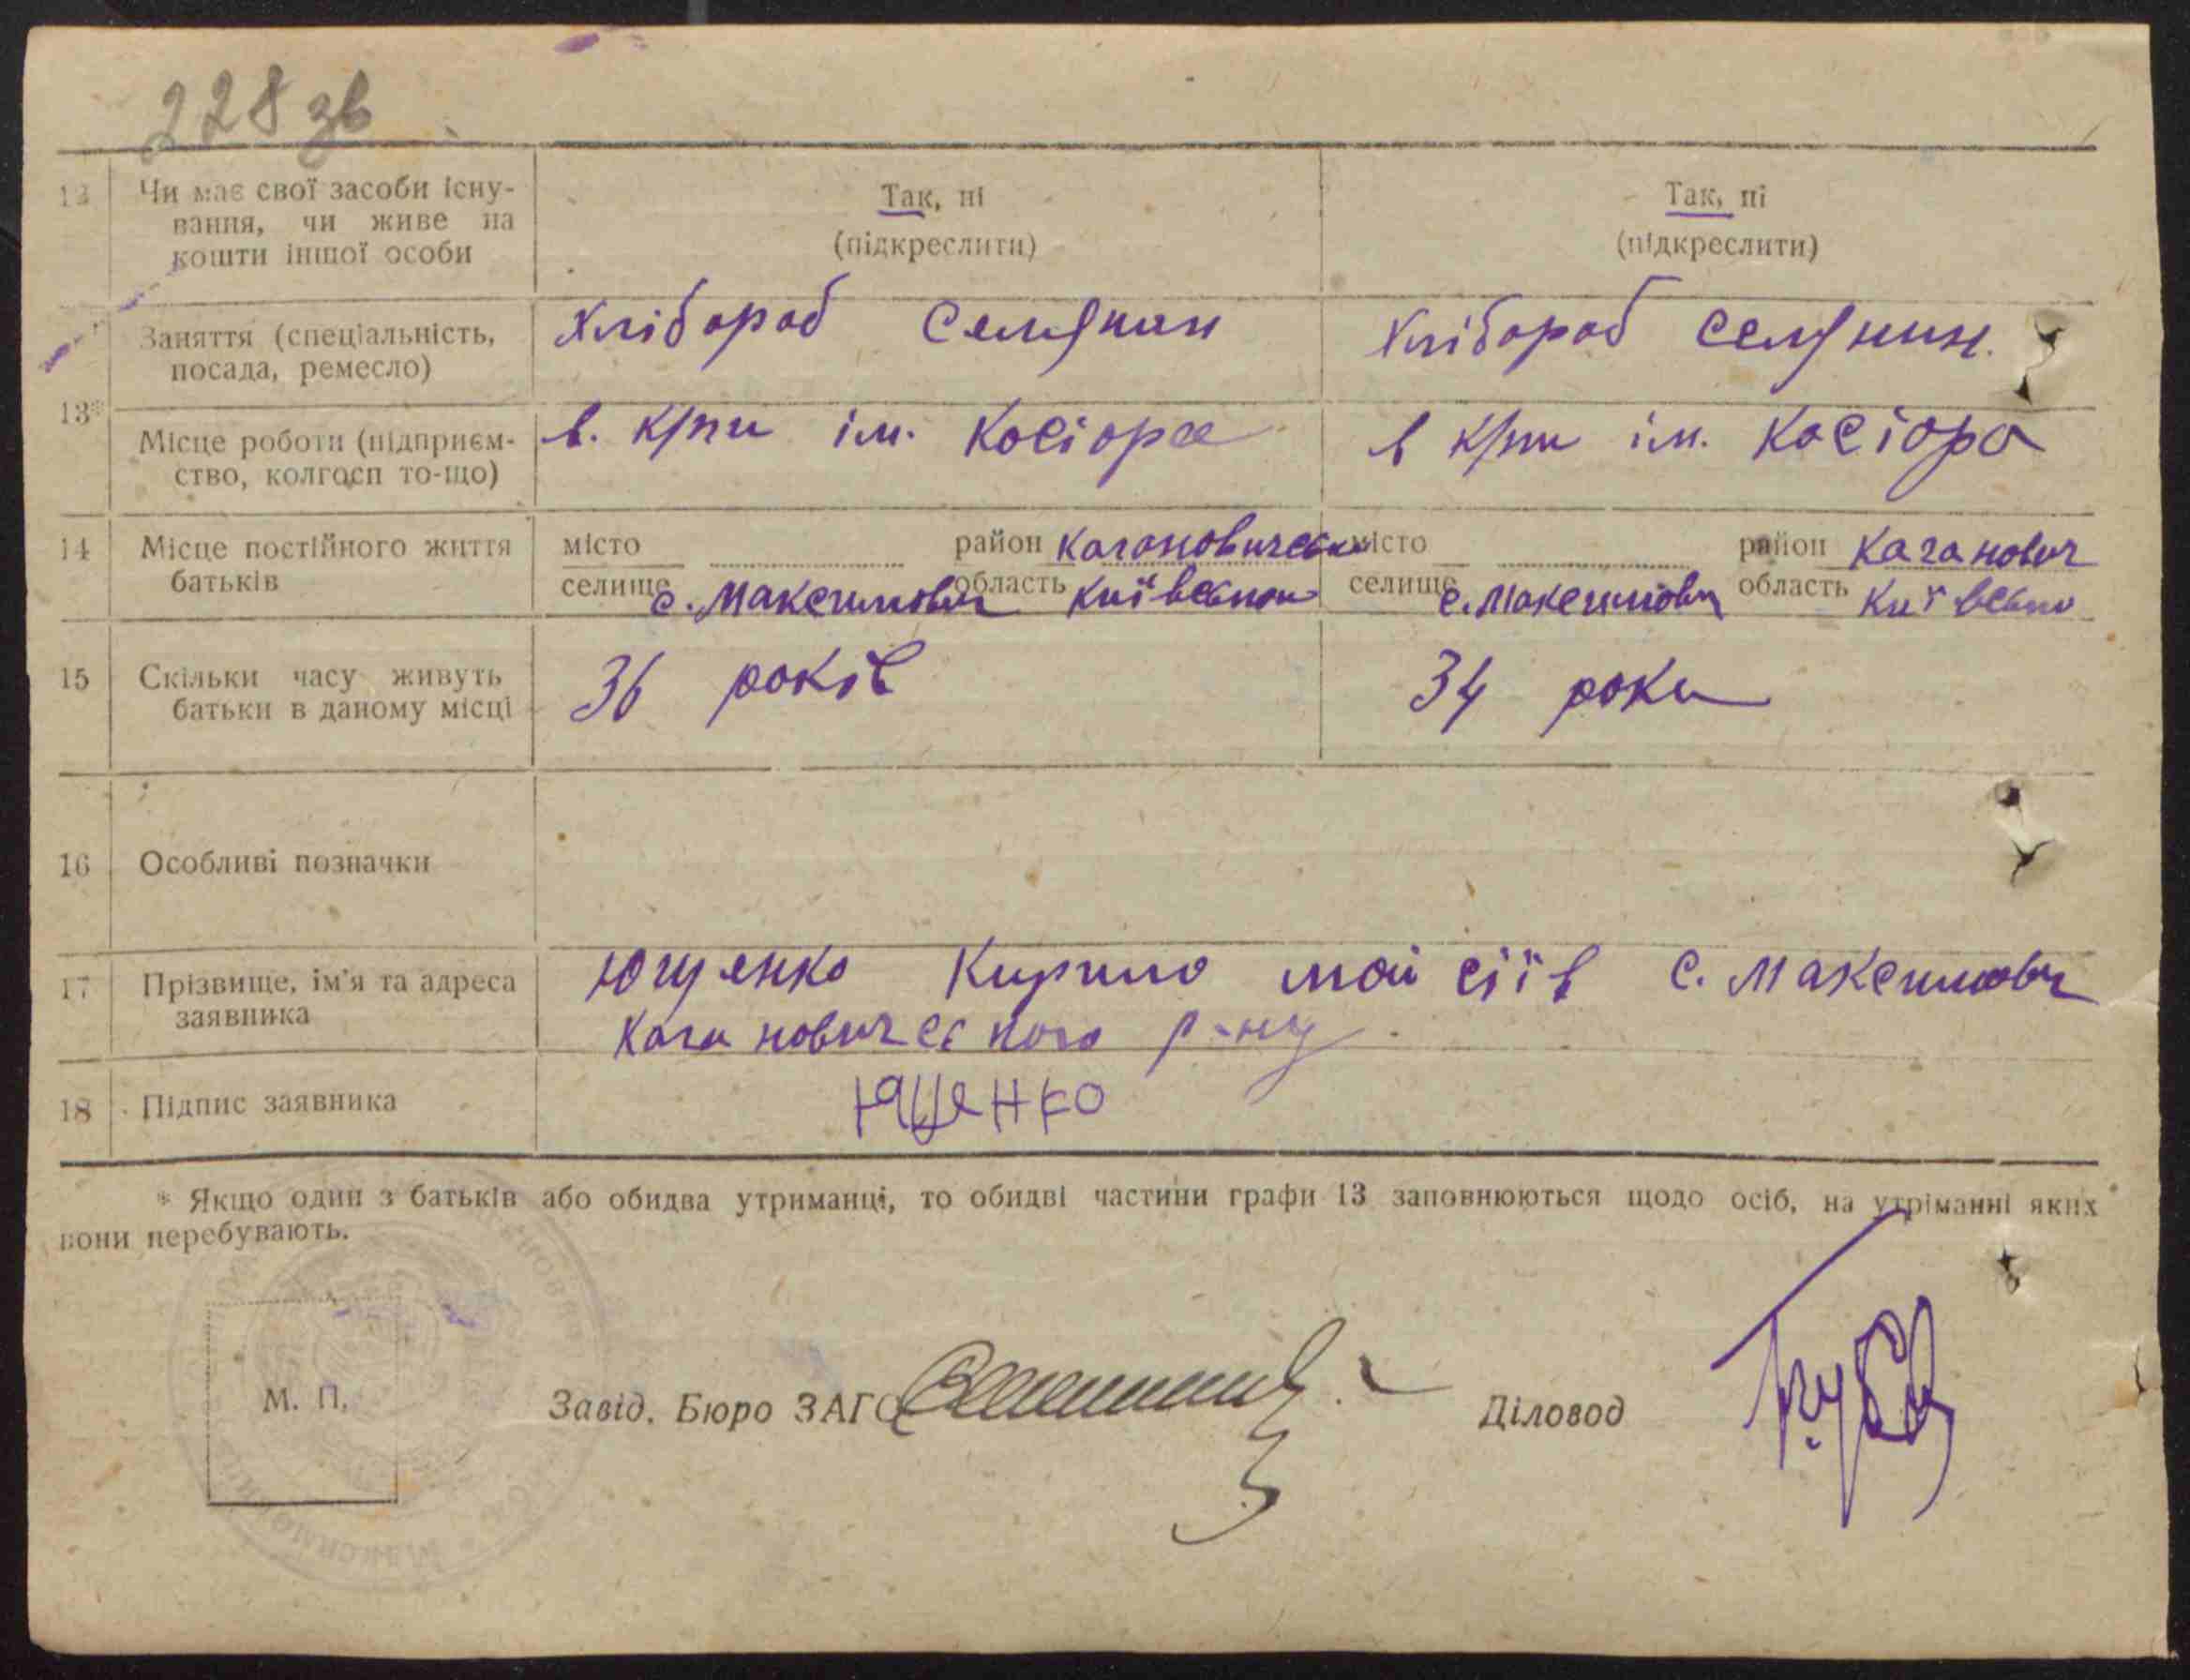 228 зв
12 Чи має свої засоби існу- Так, ні Так, ні
вання, чи живе на (підкреслити) (підкреслити)
кошти іншої особи
Заняття (спеціальність, Хлібороб Селянин Хлібороб Селянин.
посада, ремесло)
13*
Місце роботи (підприєм- в. к/пи ім. Косіора в к/пи ім. Косіора
ство, колгосп то-що)
14 Місце постійного життя місто район Кагановичеськ місто район Каганович
батьків селище с. Максимович область Київськои селище с. Максимович область Київсько
15 Скільки часу живуть 36 років 34 роки
батьки в даному місці
16 Особливі позначки
17 Прізвище, ім'я та адреса Ющенко Кирило мойсіїв с. Максимович
заявника Кагановичеського р-ну
18 Підпис заявника Ющенко
* Якщо один з батьків або обидва утриманці, то обидві частини графи 13 заповнюються щодо осіб, на утріманні яких
вони перебувають.
М. П. Завід. Бюро ЗАГС Діловод